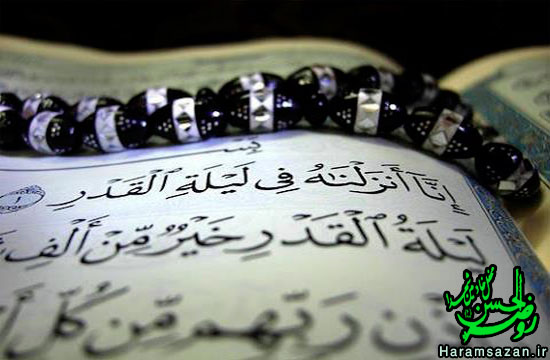 إِنَّآ أَنزَلْنَٰهُ فِى لَيْلَةِ ٱلْقَدْرِ ١
لَيْلَةُ ٱلْقَدْرِ خَيْرٌ مِّنْ أَلْفِ
رَبِّهِم مِّن كُلِّ
Haramsazan.ir